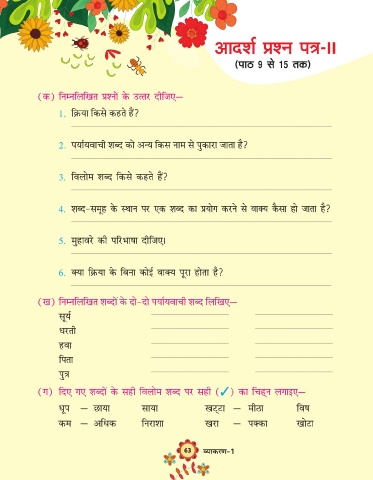 आदर्श प्रश्न पत्र-II
(पाठ 9 से 15 तक)
(क) निम्नलिखित प्रश्नों के उत्तर दीजिए—
1. क्रिया किसे कहते हैं?
2. पर्यायवाची शब्द को अन्य किस नाम से पुकारा जाता है?
3. विलोम शब्द किसे कहते हैं?
4. शब्द-समूह के स्थान पर एक शब्द का प्रयोग करने से वाक्य कैसा हो जाता है?
5. मुहावरे की परिभाषा दीजिए।
6. क्या क्रिया के बिना कोई वाक्य पूरा होता है?
(ख) निम्नलिखित शब्दों के दो-दो पर्यायवाची शब्द लिखिए—
सूर्य
धरती
हवा
पिता
पुत्र
(ग) दिए गए शब्दों के सही विलोम शब्द पर सही (✓) का चिह्न लगाइए—
धूप – छाया साया खट्टा – मीठा विष
कम – अधिक निराशा खरा – पक्का खोटा
63 व्याकरण-1